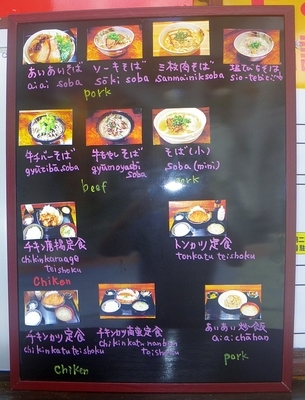 あいあいそば ソーキそば 三枚肉そば 塩てびちそば
aiai soba sōki soba sanmainiksoba sio-tebitisoba
pork
牛チバーそば 牛もやしそば そば(小)
gyūtibā soba gyūmoyashi soba soba (mini)
beef pork
チキン唐揚定食 トンカツ定食
chikinkaraage teishoku tonkatu teishoku
Chiken
チキンカツ定食 チキンカツ南蛮定食 あいあい炒飯
chikinkatu teishoku chikinkatu nanban teishoku aiai chāhan
Chiken pork